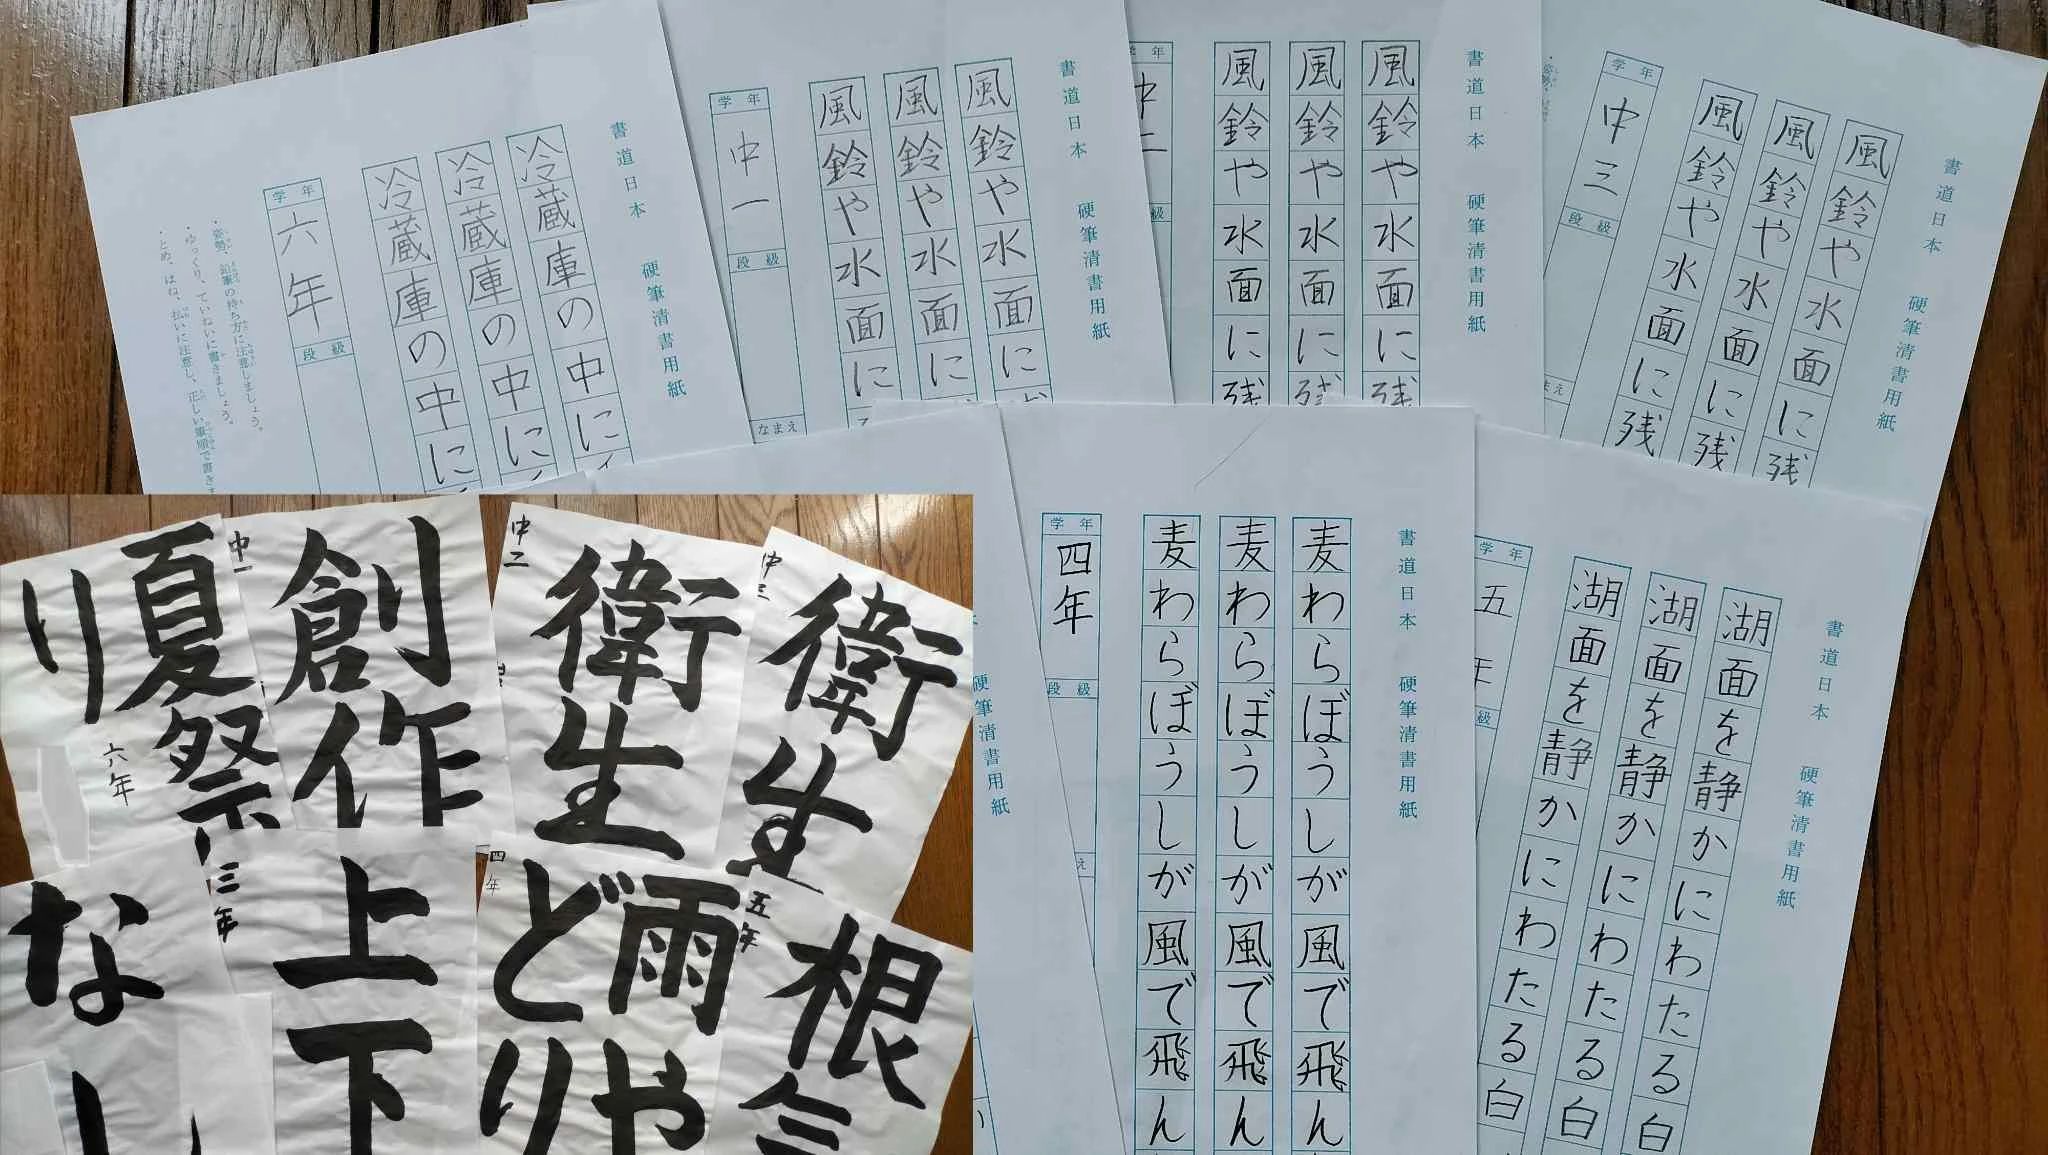 書道日本 硬筆清書用紙
冷蔵庫の中に
冷蔵庫の中に
冷蔵庫の中に
学年
六年
段級
・姿勢、鉛筆の持ち方に注意しましょう。
・ゆっくり、ていねいに書きましょう。
・とめ、はね、払いに注意し、正しい筆順で書きま
書道日本 硬筆清書用紙
風鈴や水面に
風鈴や水面に
風鈴や水面に
学年
中一
段級
なまえ
書道日本 硬筆清書用紙
風鈴や水面に残
風鈴や水面に残
風鈴や水面に残
年
中二
級
書道日本 硬筆清書用紙
風鈴や水面に残
風鈴や水面に残
風鈴や水面に残
学年
中三
段級
まえ
書道日本 硬筆清書用紙
湖面を静かにわたる白
湖面を静かにわたる白
湖面を静かにわたる白
学年
五年
級
書道日本 硬筆清書用紙
麦わらぼうしが風で飛ん
麦わらぼうしが風で飛ん
麦わらぼうしが風で飛ん
学年
四年
段級
え
硬筆清書用紙
衛生
中三
衛生
中二
創作
中一
夏祭
り
六年
根気
五年
雨や
どり
四年
上下
三年
なし